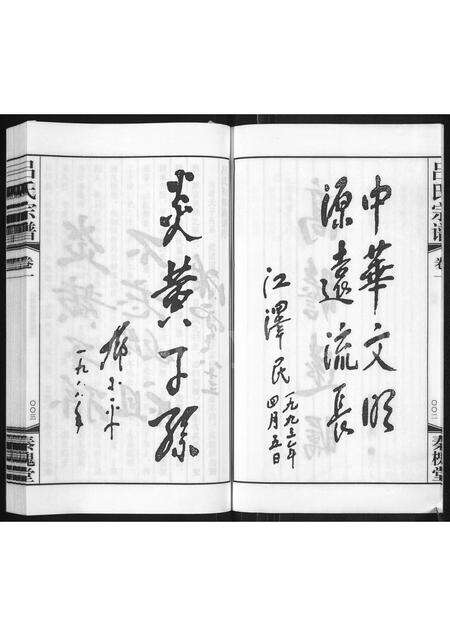 中華文明
源遠流長
江澤民
一九九三年
四月五日
吕氏宗谱
卷一
〇〇二
秦槐堂
炎黄子孫
邓小平
一九八八年
吕氏宗譜
卷一
〇〇三
秦槐堂